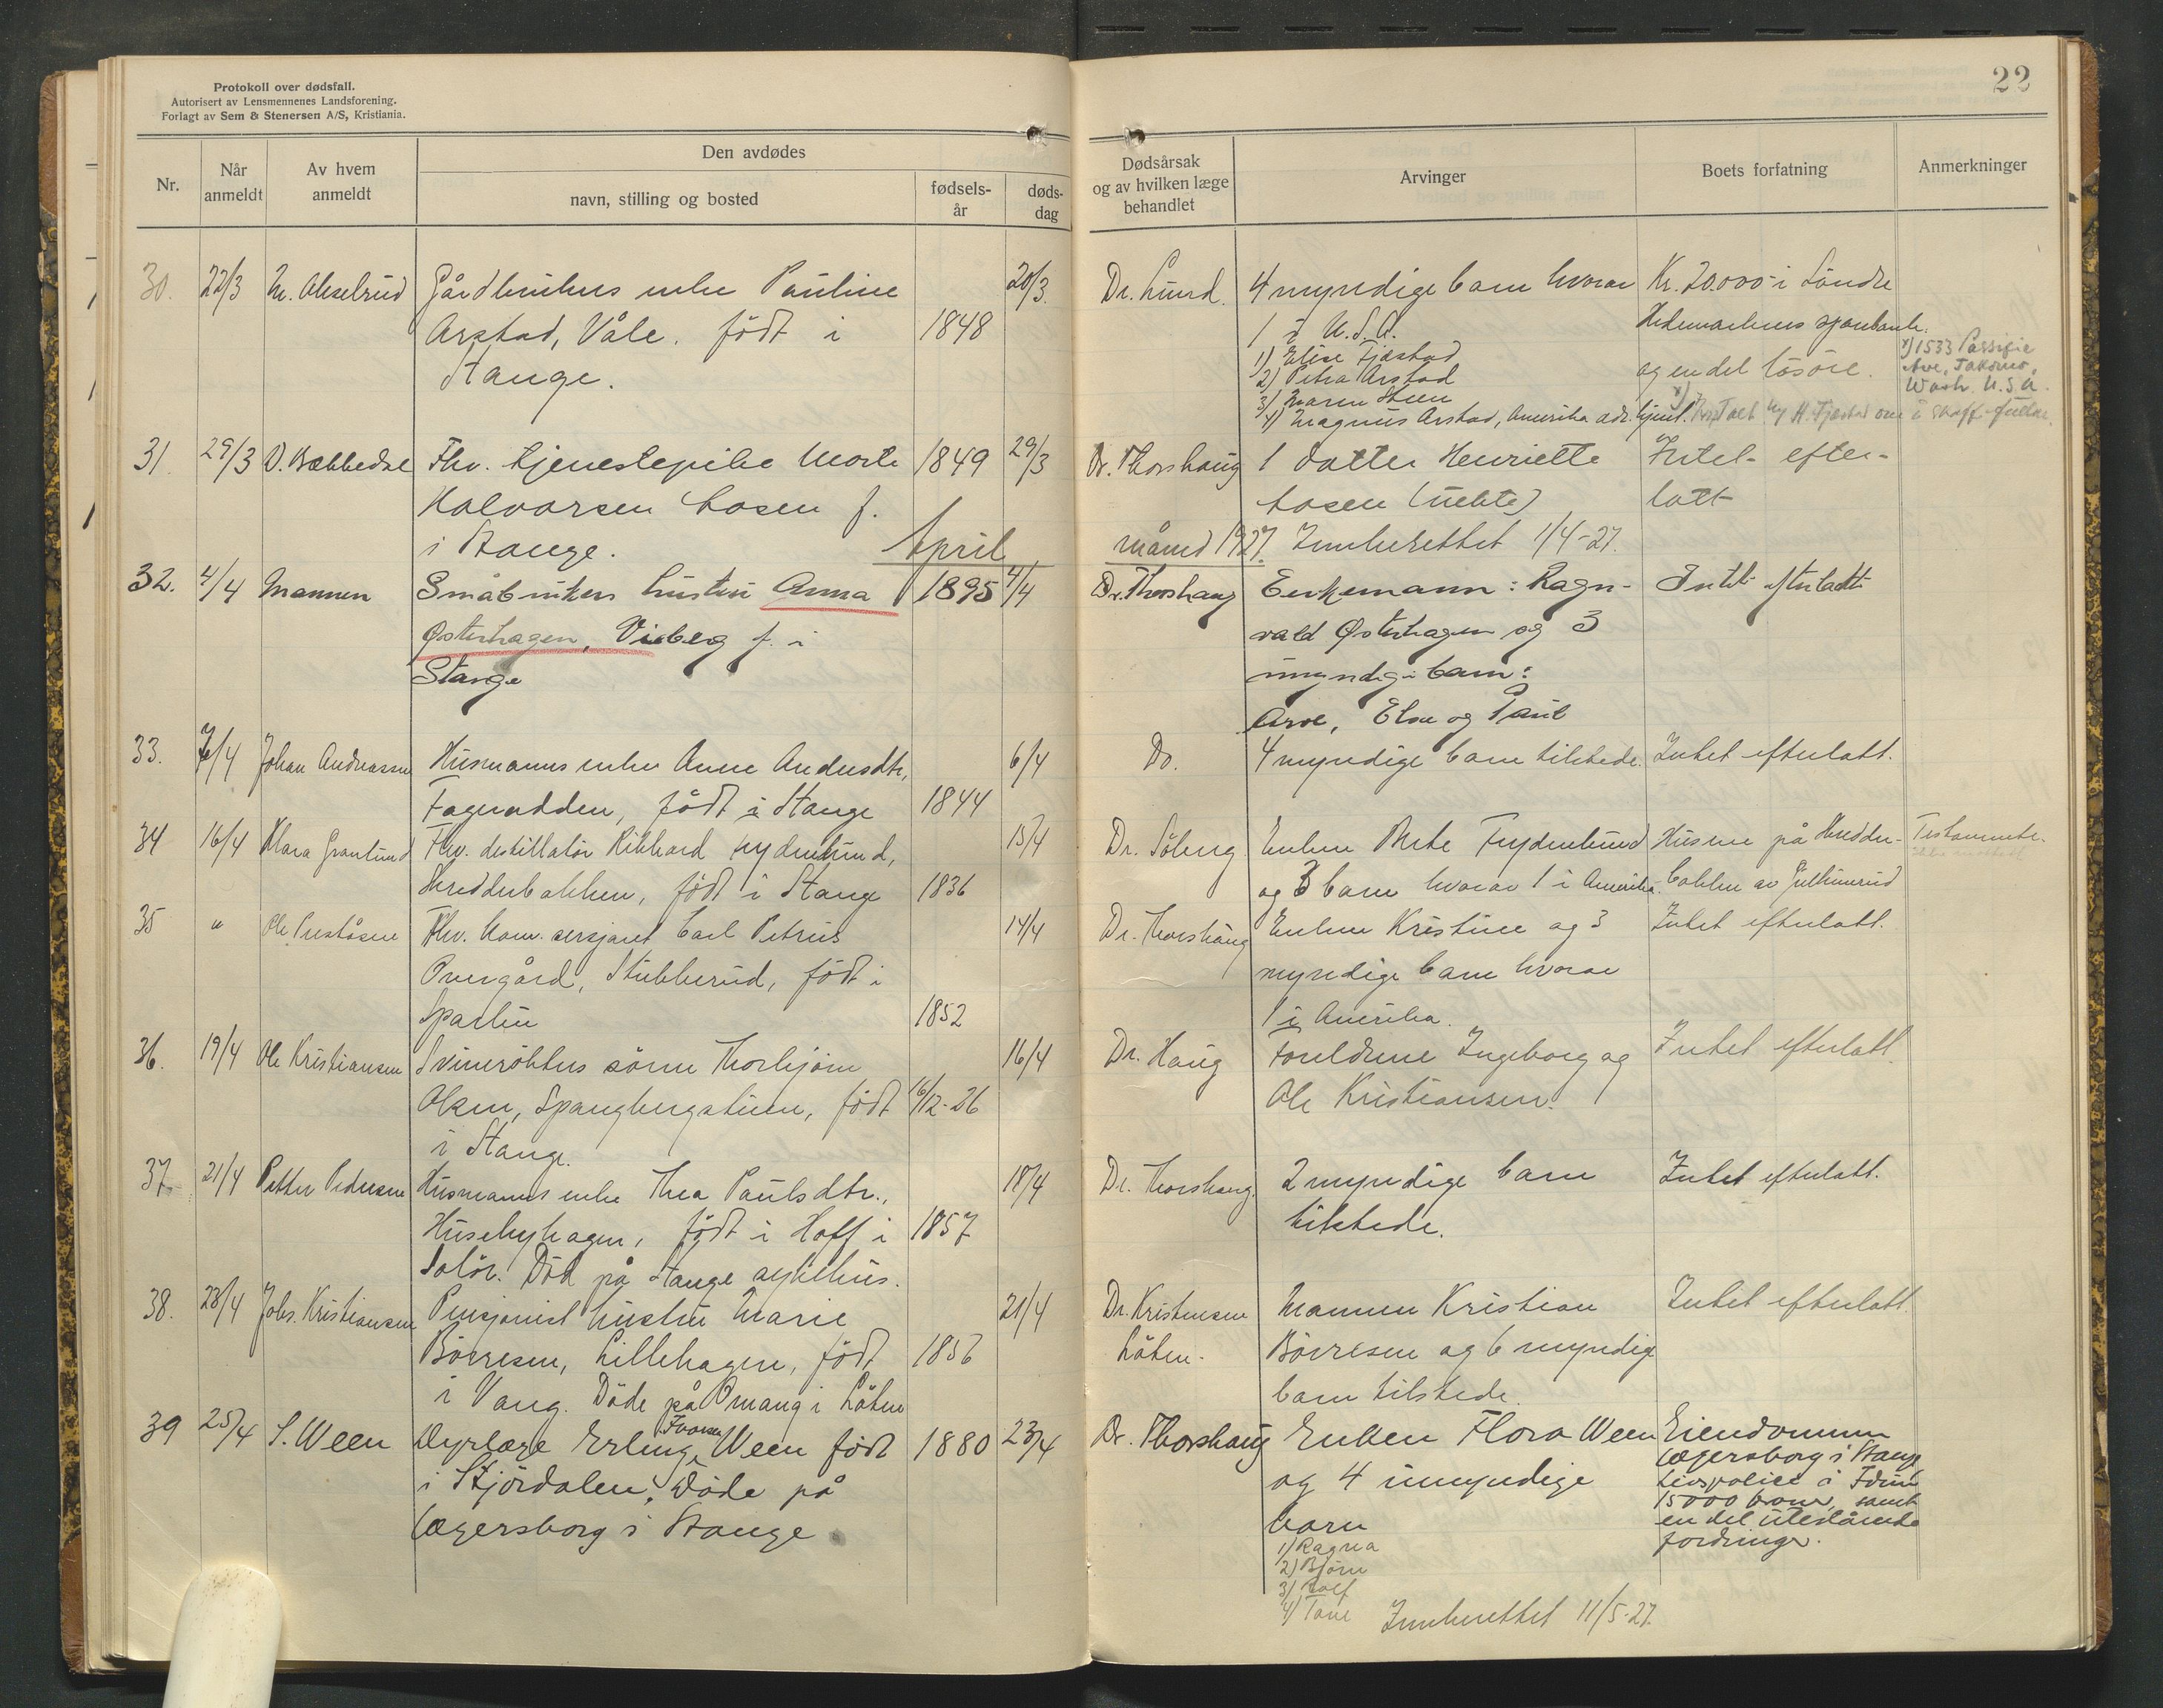 Protokoll over dødsfall.
Autorisert av Lensmennenes Landsforening.
Forlagt av Sem & Stenersen A/S, Kristiania.
22
Nr.
Når anmeldt
Av hvem anmeldt
Den avdødes
navn, stilling og bosted
fødsels-år
døds-dag
Dødsårsak og av hvilken læge behandlet
Arvinger
Boets forfatning
Anmerkninger
30. 22/3 M. Akselrud Gårdbrukers enke Pauline 20/3. Dr. Lund. 4 myndige barn hvorav Kr. 20.000 i Søndre
Arstad, Våle. født i 1848 1 i U.S.A. Hedemarkens sparebank.
Stange. 1) Elise Fjæstad og en del løsøre. x) 1533 Passific
2) Petra Arstad Ave, Takoma,
3) Maren Steen Wash. U.S.A.
4) Magnus Arstad, Amerika adr.
31. 29/3 O. Bækkedal Fhv. tjenestepike Marte 1849 29/3 Dr. Thorshaug 1 datter Henriette Intet efter-
Halvorsen Losen f. Losen (uekte) latt
i Stange.
April måned 1927. Innberettet 1/4-27.
32. 4/4 Mannen Småbrukers hustru Anna 1895 4/4 Dr. Thorshaug Enkemann: Ragn- Intet efterladt
Østerhagen, Viberg f. i vald Østerhagen og 3
Stange umyndige barn:
Arve, Else og Paul
33. 7/4 Johan Andreassen Husmanns enke Anne Andersdtr, 6/4 Do. 4 myndige barn tilstede. Intet efterlatt.
Fagerodden, født i Stange 1844
34 16/4 Klara Granlund Fhv. destillatør Rikhard Frydenlund, 15/4 Dr. Søberg Enken Berte Frydenlund Husene på Skredder- Testamente.
Skredderbakken, født i Stange 1836 og 3 barn hvorav 1 i Amerika. bakken av Gullunrud
35 " Ole Preståsen Fhv. korn. sersjant Carl Petrus 14/4 Dr. Thorshaug Enken Kristine og 3 Intet efterlatt.
Overgård, Stubberud, født i myndige barn hvorav
Sparbu 1852 1 i Amerika.
36. 19/4 Ole Kristiansen Svinerøkters sønn Thorbjørn 16/4 Dr. Haug Foreldrene Ingeborg og Intet efterlatt.
Olsen, Spangbergstuen, født 6/12-26 Ole Kristiansen.
i Stange.
37. 21/4 Petter Pedersen Husmanns enke Thea Paulsdtr., 18/4 Dr. Thorshaug. 2 myndige barn Intet efterlatt.
Husebyhagen, født i Hoff i 1857 tilstede.
Solør. Død på Stange sykehus.
38. 23/4 Johs. Kristiansen Pensjonist hustru Marie 21/4 Dr. Kristensen Mannen Kristian Intet efterlatt.
Børresen, Lillehagen, født 1856 Løten. Børresen og 6 myndige
i Vang. Døde på Omang i Løten barn tilstede.
39 25/4 S. Ween Dyrlæge Erling Ivarsen Ween født 1880 23/4 Dr. Thorshaug Enken Flora Ween Eiendommen
i Stjørdalen, Døde på og 4 umyndige Lægersborg i Stange
Lægersborg i Stange barn Livspolice i Idun
1) Ragna 15000 kroner, samt
2) Bjørn en del utestående
3) Rolf fordringer.
4) Tove Innberettet 11/5-27.